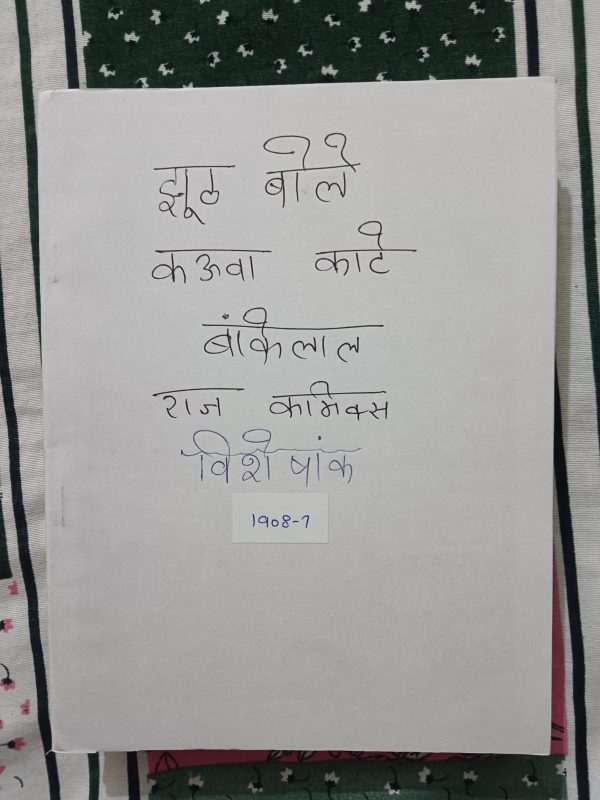 झूठ बोले
कऊवा काटे
बांकेलाल
राज कामिक्स
विशेषांक
1908-7